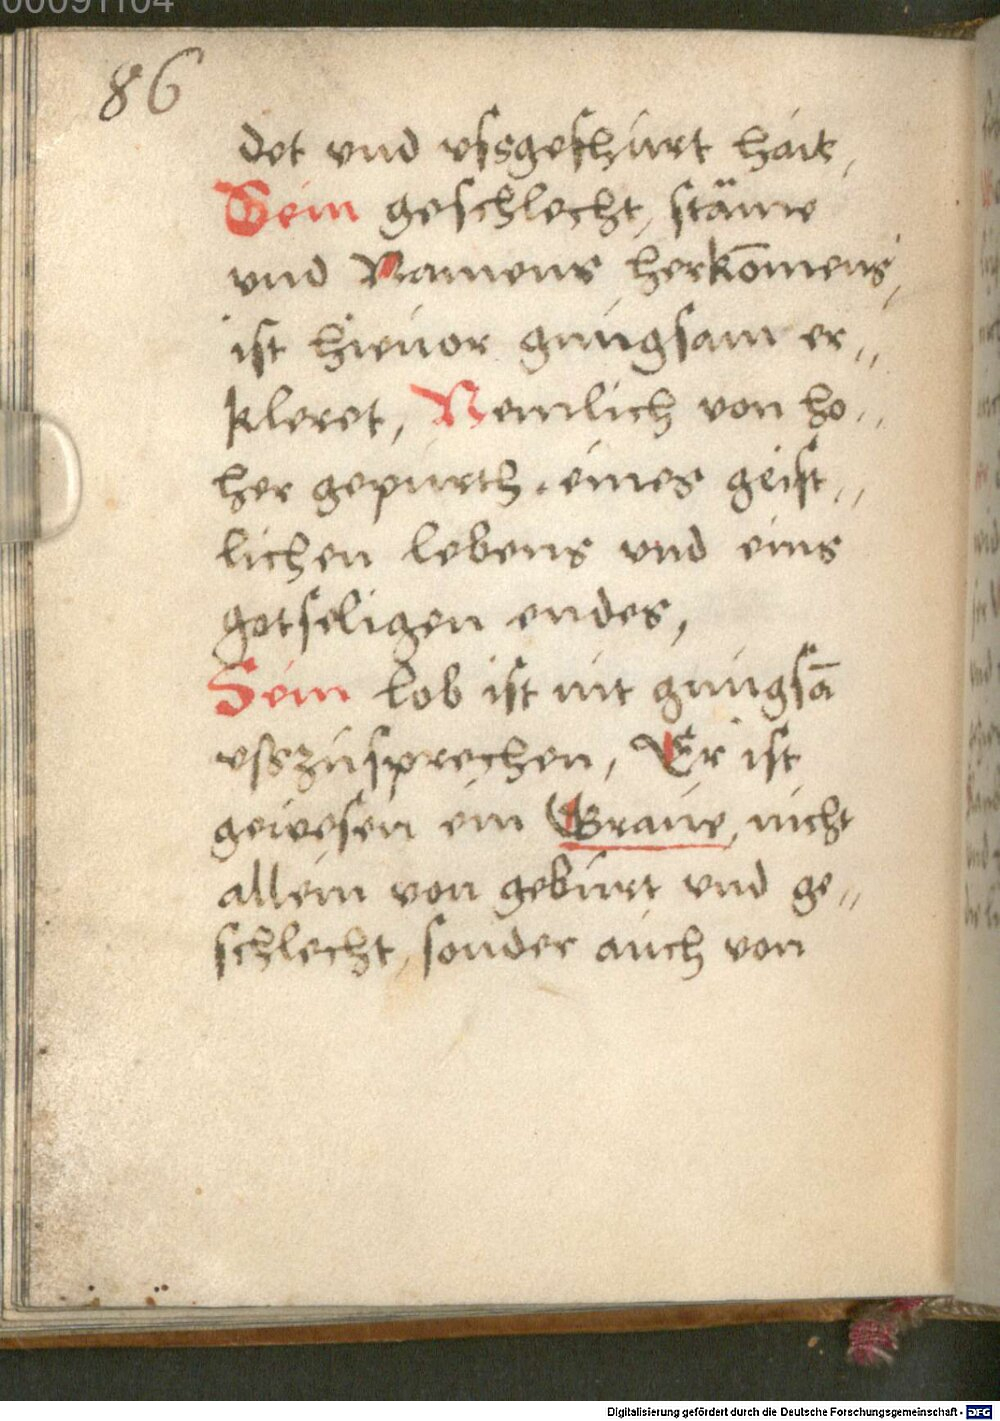 00091104
86
det vnd vssgefhürt hait,
Sein geschlecht, stäme
vnd Namens herkōmens,
ist hieuor gnügsam er„
kleret, Nemlich von ho„
her gepürth. eines geist„
lichen lebens vnd eins
gotseligen endes,
Sein lob ist nit gnügsā
vsszusprechen, Er ist
gewesen ein Graue, nicht
allein von gebürt vnd ge„
schlecht, sonder auch von
Digitalisierung gefördert durch die Deutsche Forschungsgemeinschaft - DFG